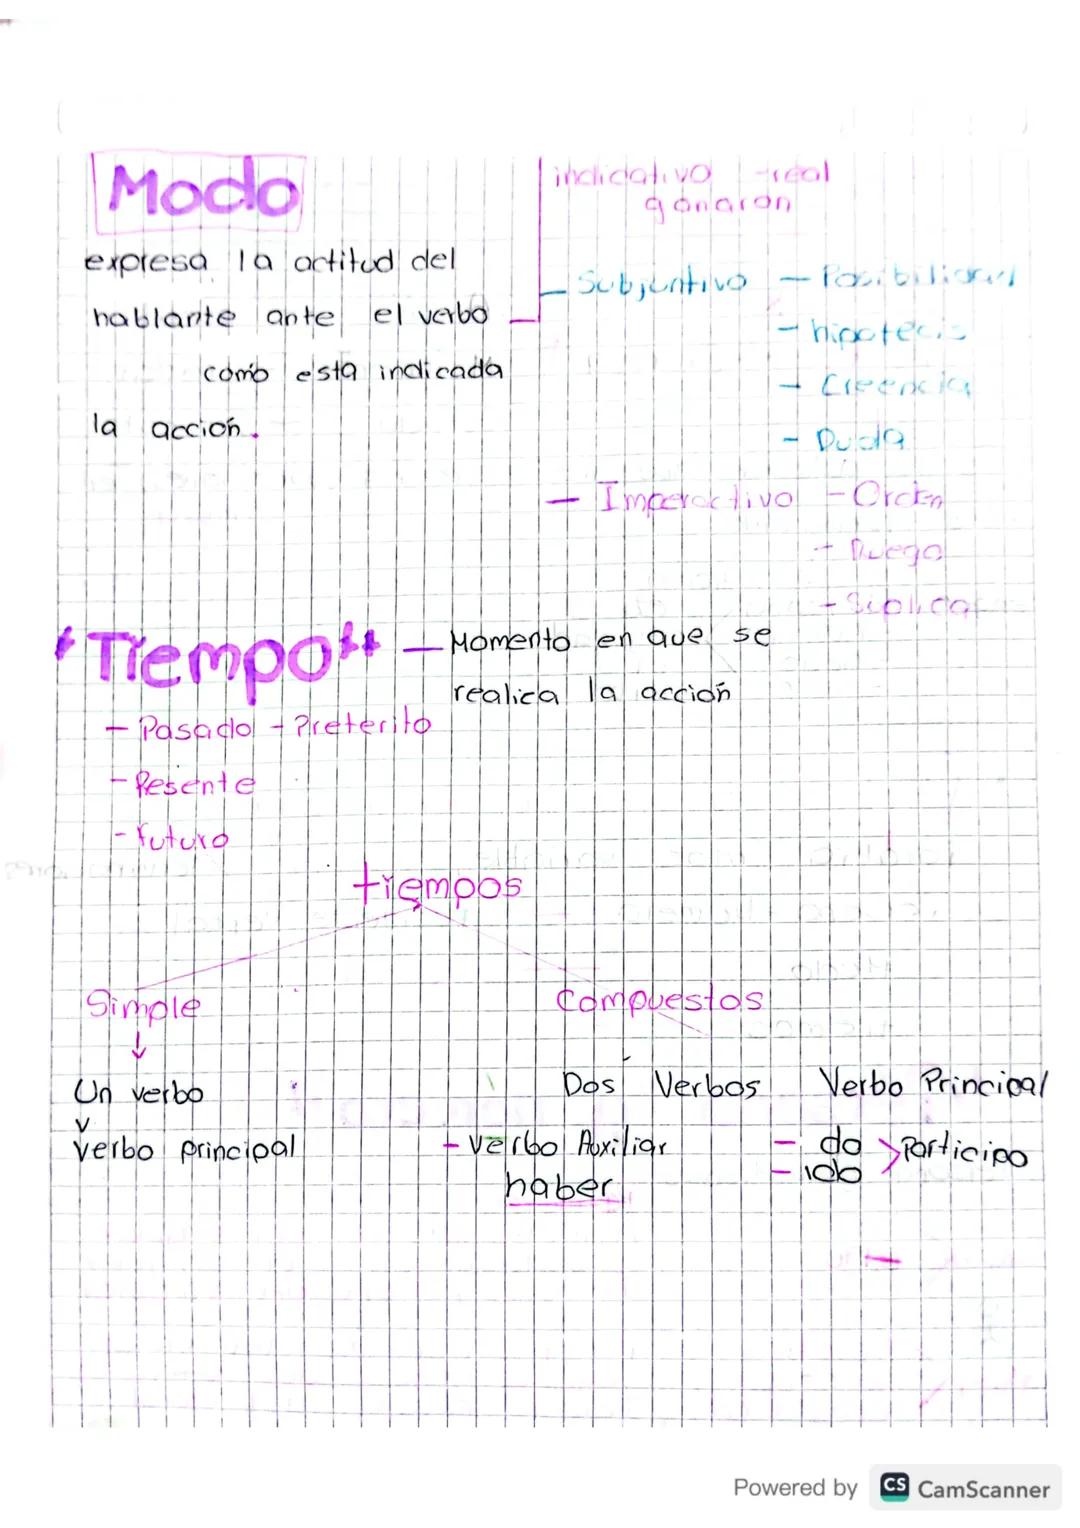 Modo
expresa la actitud del
hablante ante el verbo
como esta indicada
la acción.
indicativo - real
ganaron
- Subjuntivo - Posibilidad
- hipotecis
- Creencia
- Duda
- Imperactivo - Orden
- Ruego
- Suplica
Tiempo - Momento en que se
realica la acción
- Pasado - Preterito
- Resente
- futuro
tiempos
Simple
Compuestos
Un verbo
verbo principal
Dos Verbos
- Verbo Auxiliar
haber
Verbo Principal
- do > Participo
- ido
Powered by CS CamScanner